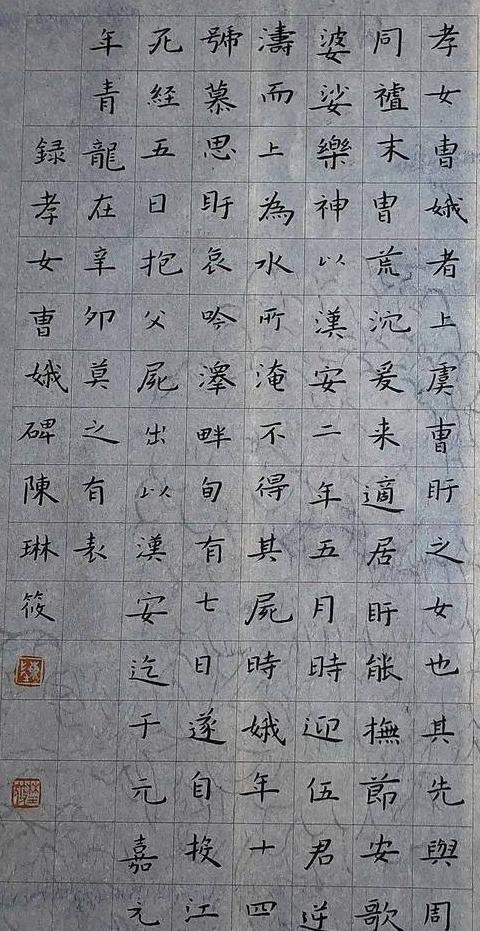 孝女曺娥者上虞曺盱之女也其先與周
同祖末胄荒沉爰来適居盱能撫節安歌
婆娑樂神以漢安二年五月時迎伍君逆
濤而上為水所淹不得其屍時娥年十四
號慕思盱哀吟澤畔旬有七日遂自投江
死経五日抱父屍出以漢安迄于元嘉元
年青龍在辛卯莫之有表
録孝女曺娥碑陳琳筱